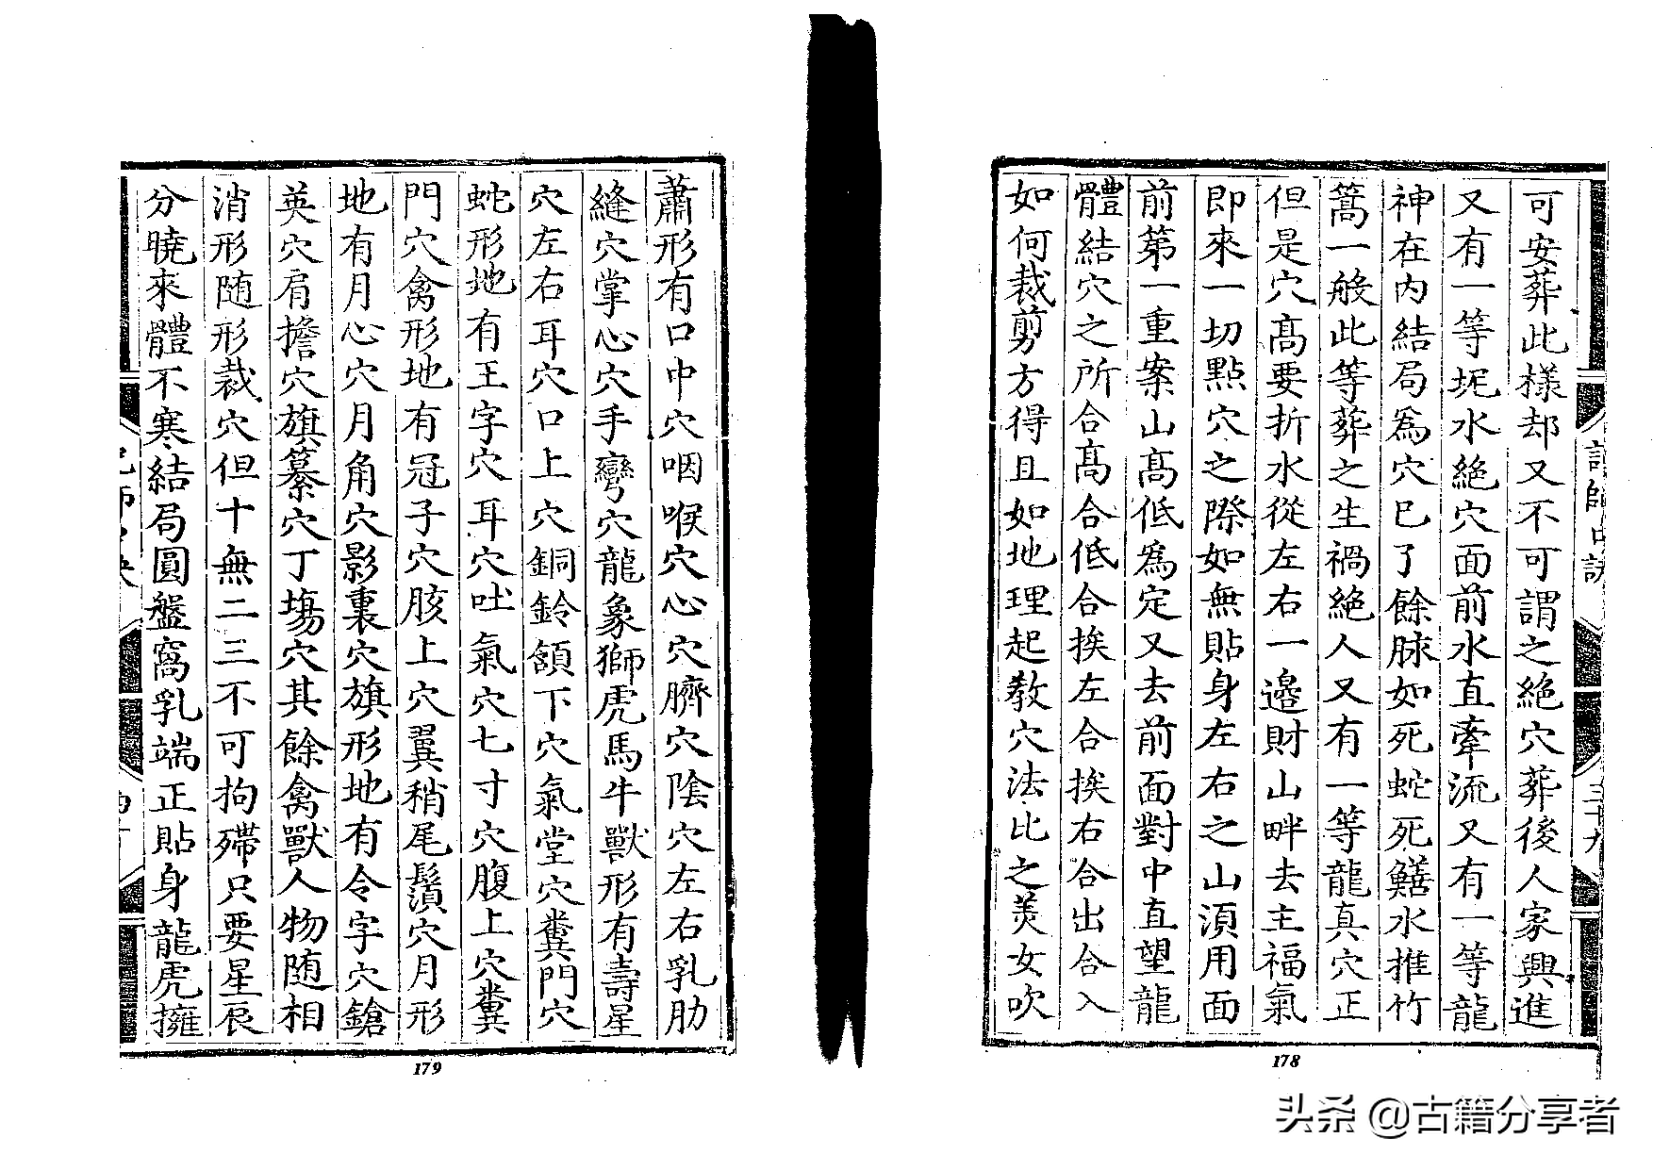 可安葬此樣却又不可謂之絶穴葬後人家興進
又有一等坭水絶穴面前水直牽流又有一等龍
神在内結局爲穴已了餘脉如死蛇死鱔水推竹
篙一般此等葬之生禍絶人又有一等龍真穴正
但是穴髙要折水從左右一邊財山畔去主福氣
即來一切㸃穴之際如無貼身左右之山湏用面
前第一重案山髙低爲定又去前面對中直望龍
體結穴之所合髙合低合挨左合挨右合出合入
如何裁剪方得且如地理起教穴法比之美女吹
蕭形有口中穴咽喉穴心穴臍穴陰穴左右乳肋
縫穴掌心穴手彎穴龍象獅虎馬牛獸形有壽星
穴左右耳穴口上穴銅鈴頷下穴氣堂穴糞門穴
蛇形地有王字穴耳穴吐氣穴七寸穴腹上穴糞
門穴禽形地有冠子穴胲上穴翼稍尾鬚穴月形
地有月心穴月角穴影裏穴旗形地有令字穴鎗
英穴肩擔穴旗纂穴丁塲穴其餘禽獸人物随相
消形随形裁穴但十無二三不可拘殢只要星辰
分曉來體不寒結局圓盤窩乳端正貼身龍虎擁
三十九
178
179
头条 @古籍分享者